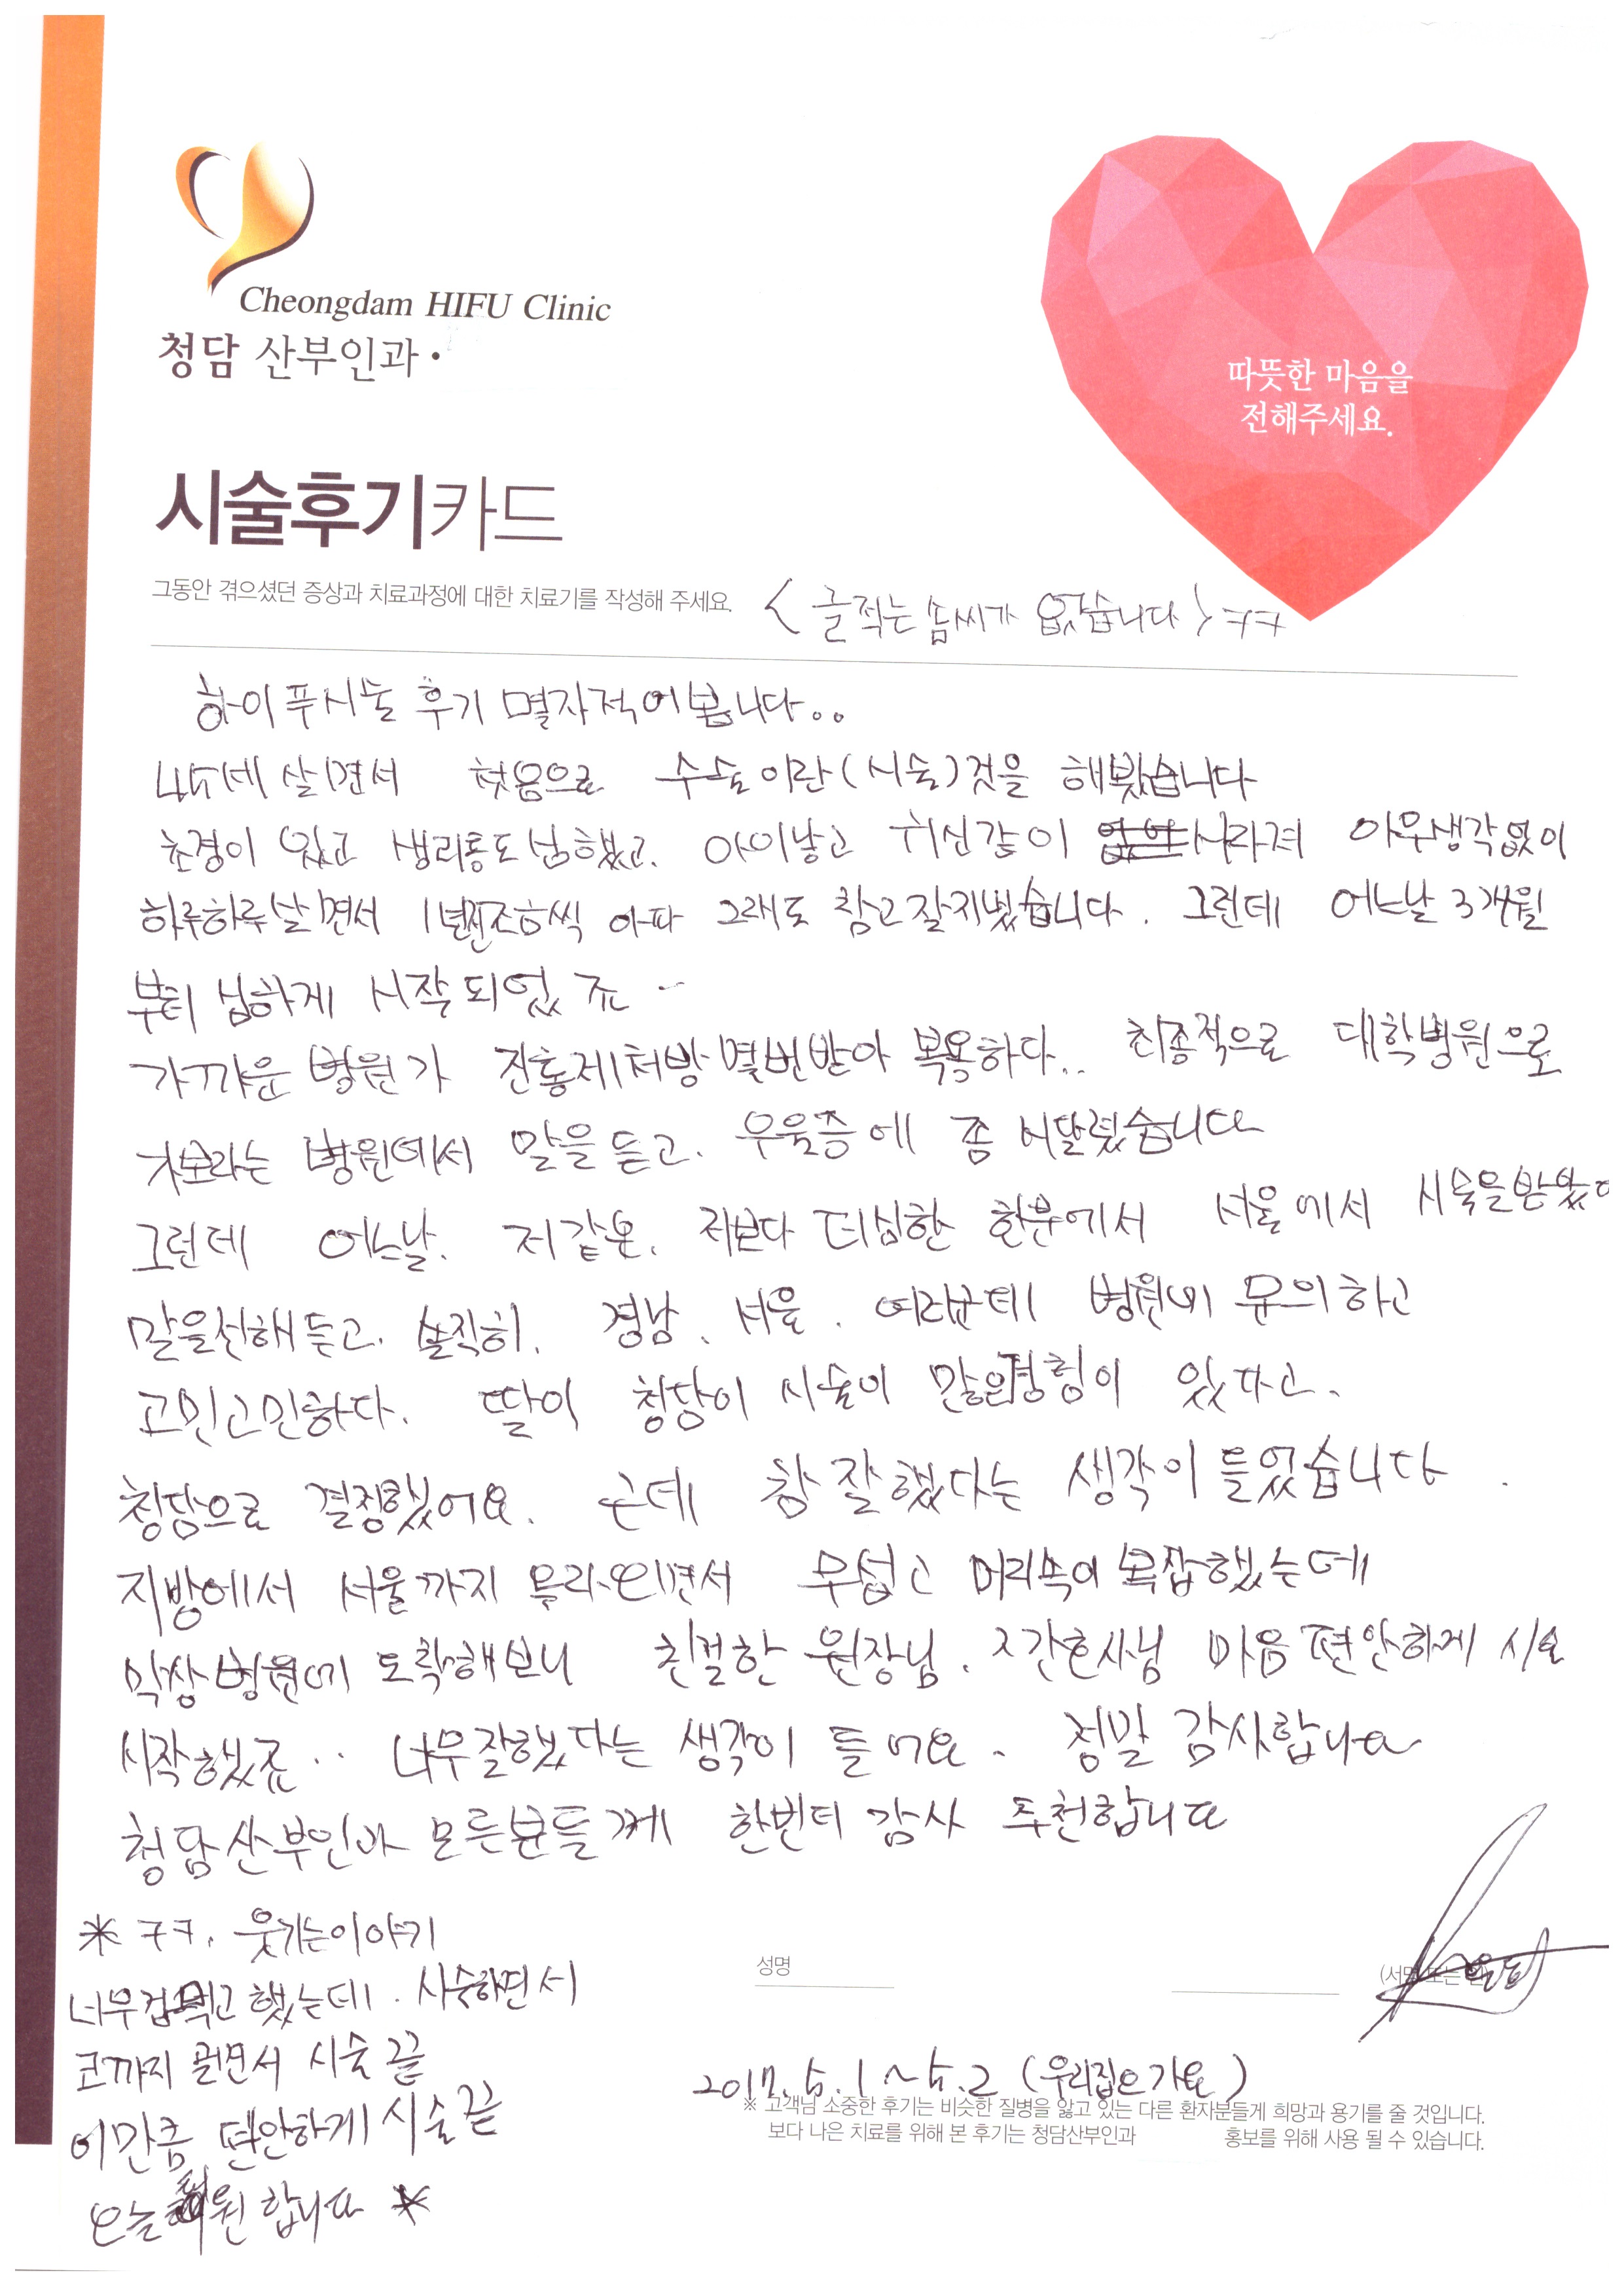 Cheongdam HIFU Clinic
청담 산부인과
따뜻한 마음을
전해주세요.
시술후기카드
그동안 겪으셨던 증상과 치료과정에 대한 치료기를 작성해 주세요.
<글적는 솜씨가 없습니다> ㅋㅋ
하이푸시술 후기 몇자적어봅니다..
살면서 첫음으로 수술이란(시술)것을 해봤습니다
초경이 있고 생리통도 심했고. 아이낳고 귀신같이 사라져 아무생각없이
하루하루살면서 1년 조금씩 아파 그래도 참고잘지냈습니다. 그런데 어느날 3개월
부터 심하게 시작되었죠..
가까운 병원가 진통제처방 몇번받아 복용하다.. 최종적으로 대학병원으로
가보라는 병원에서 말을듣고. 우울증에 좀 시달렸습니다
그런데 어느날. 저같은. 저보다 더심한 한분에서 서울에서 시술을받았
말을전해듣고. 솔직히. 경남. 서울. 여러군데 병원에 문의하고
고민고민하다. 딸이 청담이 시술이 많은경험이 있다고.
청담으로 결정했어요. 근데 참잘했다는 생각이 들었습니다.
지방에서 서울까지 올라오면서 무섭고 머리속이 복잡했는데
막상병원에 도착해보니 친절한 원장님. 간호사님 마음편안하게
시작했죠.. 너무잘했다는 생각이 들어요. 정말 감사합니다
청담산부인과 모든분들께 한번더 감사 추천합니다
* ㅋㅋ. 웃기는이야기
너무겁먹고 했는데. 시술하면서
코까지 골면서 시술끝
이만큼 편안하게 시술끝
오늘 퇴원합니다 *
성명
2017. 5. 1 ~ 5. 2 (우리집으가요)
※ 고객님 소중한 후기는 비슷한 질병을 앓고 있는 다른 환자분들게 희망과 용기를 줄 것입니다.
보다 나은 치료를 위해 본 후기는 청담산부인과 홍보를 위해 사용 될 수 있습니다.